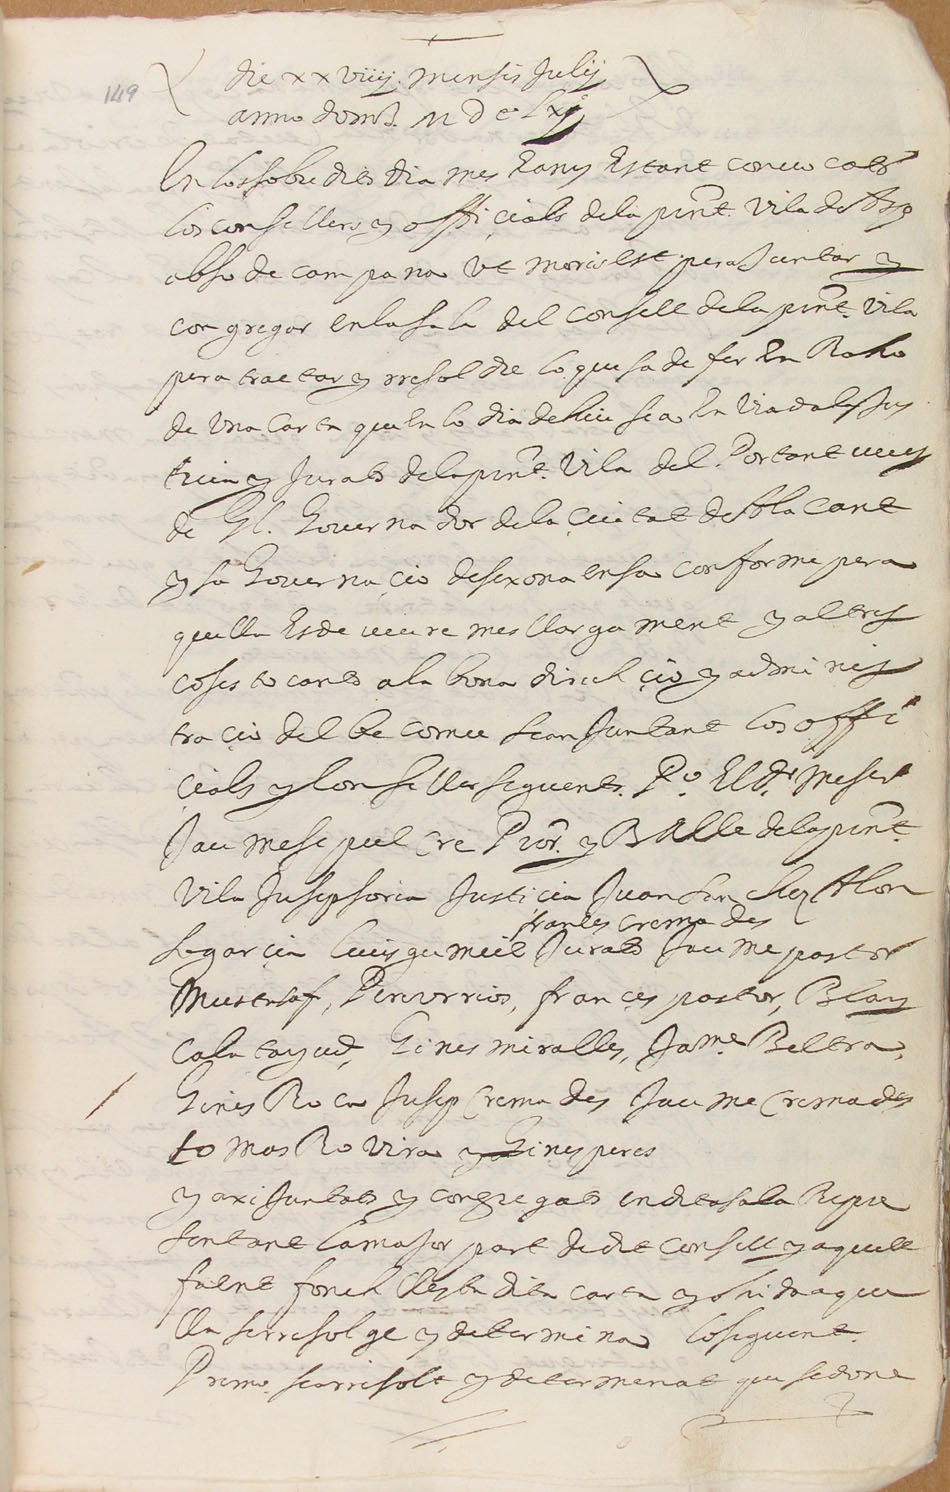 149
die xxviiij mensis Julij
anno domi. MDCLxj
En los sobredits dia mes E any Estant convocats
los consellers y officials dela pnt. Vila de Asp
abso de campana ut moris Est pera Juntar y
congregar en la sala del consell dela pnt. Vila
pera tractar y rresoldre lo que sa de fer En Raho
de una carta que en lo dia de huy sea Enviada als Jus
ticia y Jurats dela pnt. Vila del Portantveus
de Gl. Governador dela Ciutat de Alacant
y sa Governacio desexona ensa conforme per a
quella Es de veure mes llargament y altres
coses tocants a la bona direccio y adminis
tracio del be comu sean Juntant los offi
cials y Consellers seguents. Po. El Dr. Meser
Jaume Sepulcre Pror. y Balle dela pnt.
Vila Jusep soria Justicia Juan Sanchez Alon
frances cremades
so garcia luis gumiel Jurats Jaume pastor
Mustasaf, Pere urios, frances pastor, Blay
Calatayud, Gines miralles, Jame. Beltra,
Gines Roca Jusep Cremades Jaume Cremades
tomas Rovira y Gines peres
y axi Juntats y congregats en dita sala Repre
sentant la major part de dit consell y aquell
faent fonch llesta dita carta y ohida aque
lla se rresolge y determina lo seguent.
Primo sea rresolt y determenat que se done